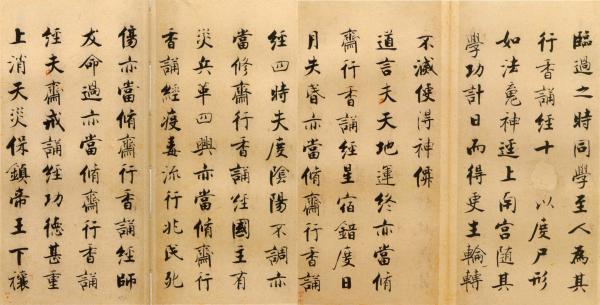 臨過之時同學至人為其
行香誦經十 以度尸形
如法鬼神逕上南宮隨其
學功計日而得更生輪轉
不滅便得神僊
道言夫天地運終亦當脩
齋行香誦經星宿錯度日
月失昏亦當脩齋行香誦
經四時失度陰陽不調亦
當修齋行香誦經國主有
災兵革四興亦當脩齋行
香誦經疫毒流行兆民死
傷亦當脩齋行香誦經師
友命過亦當脩齋行香誦
經夫齋戒誦經功德甚重
上消天災保鎮帝王下禳